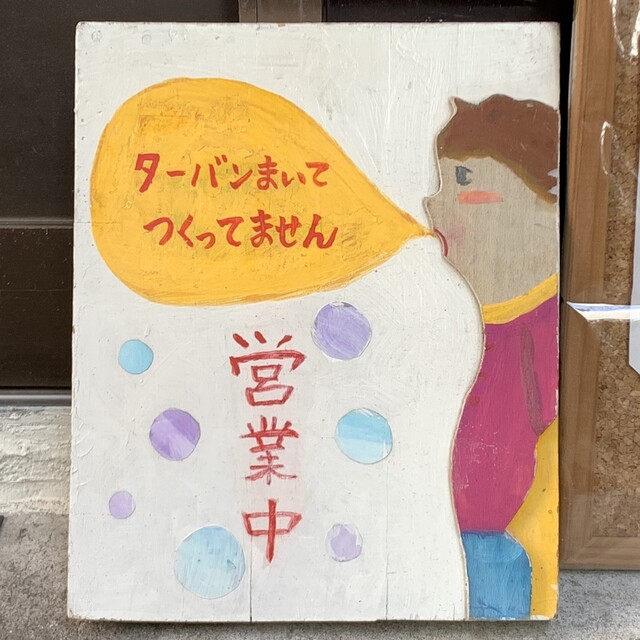 ターバンまいて
つくってません
営業中